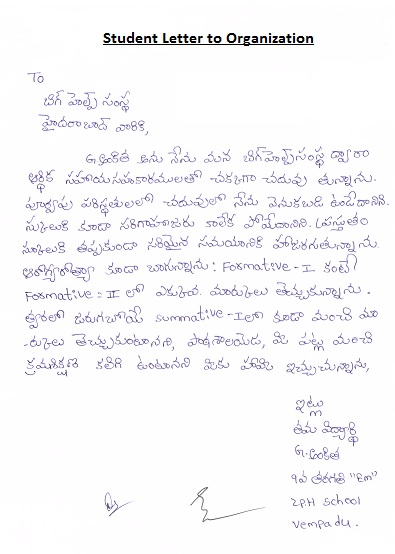 Student Letter to Organization
To
బిగ్ హెల్ప్ సంస్థ
హైదరాబాద్ వారికి,
G.అంకిత అను నేను మన బిగ్‌హెల్ప్‌సంస్థ ద్వారా
ఆర్థిక సహాయసహకారములతో చక్కగా చదువు తున్నాను.
పూర్వపు పరిస్థితులలో చదువులో నేను వెనుకబడి ఉండేదానిని.
స్కూలుకి కూడా సరిగాహాజరు కాలేక పోయేదానిని. ప్రస్తుతం
స్కూలుకి తప్పకుండా సరియైన సమయానికి హాజరగుతున్నాను.
ఆరోగ్యరీత్యా కూడా బాగున్నాను: Formative-I కంటే
Formative-II లో ఎక్కువ మార్కులు తెచ్చుకున్నాను.
త్వరలో జరుగబోయే summative-Iలో కూడా మంచి మా
-ర్కులు తెచ్చుకుంటానని, పాఠశాలయెడ, మీ పట్ల మంచి
క్రమశిక్షణ కలిగి ఉంటానని మీకు హామీ ఇచ్చుచున్నాను,
ఇట్లు
తమ విద్యార్థి
G.అంకిత
9వ తరగతి "Em"
ZPH School
Vempadu.